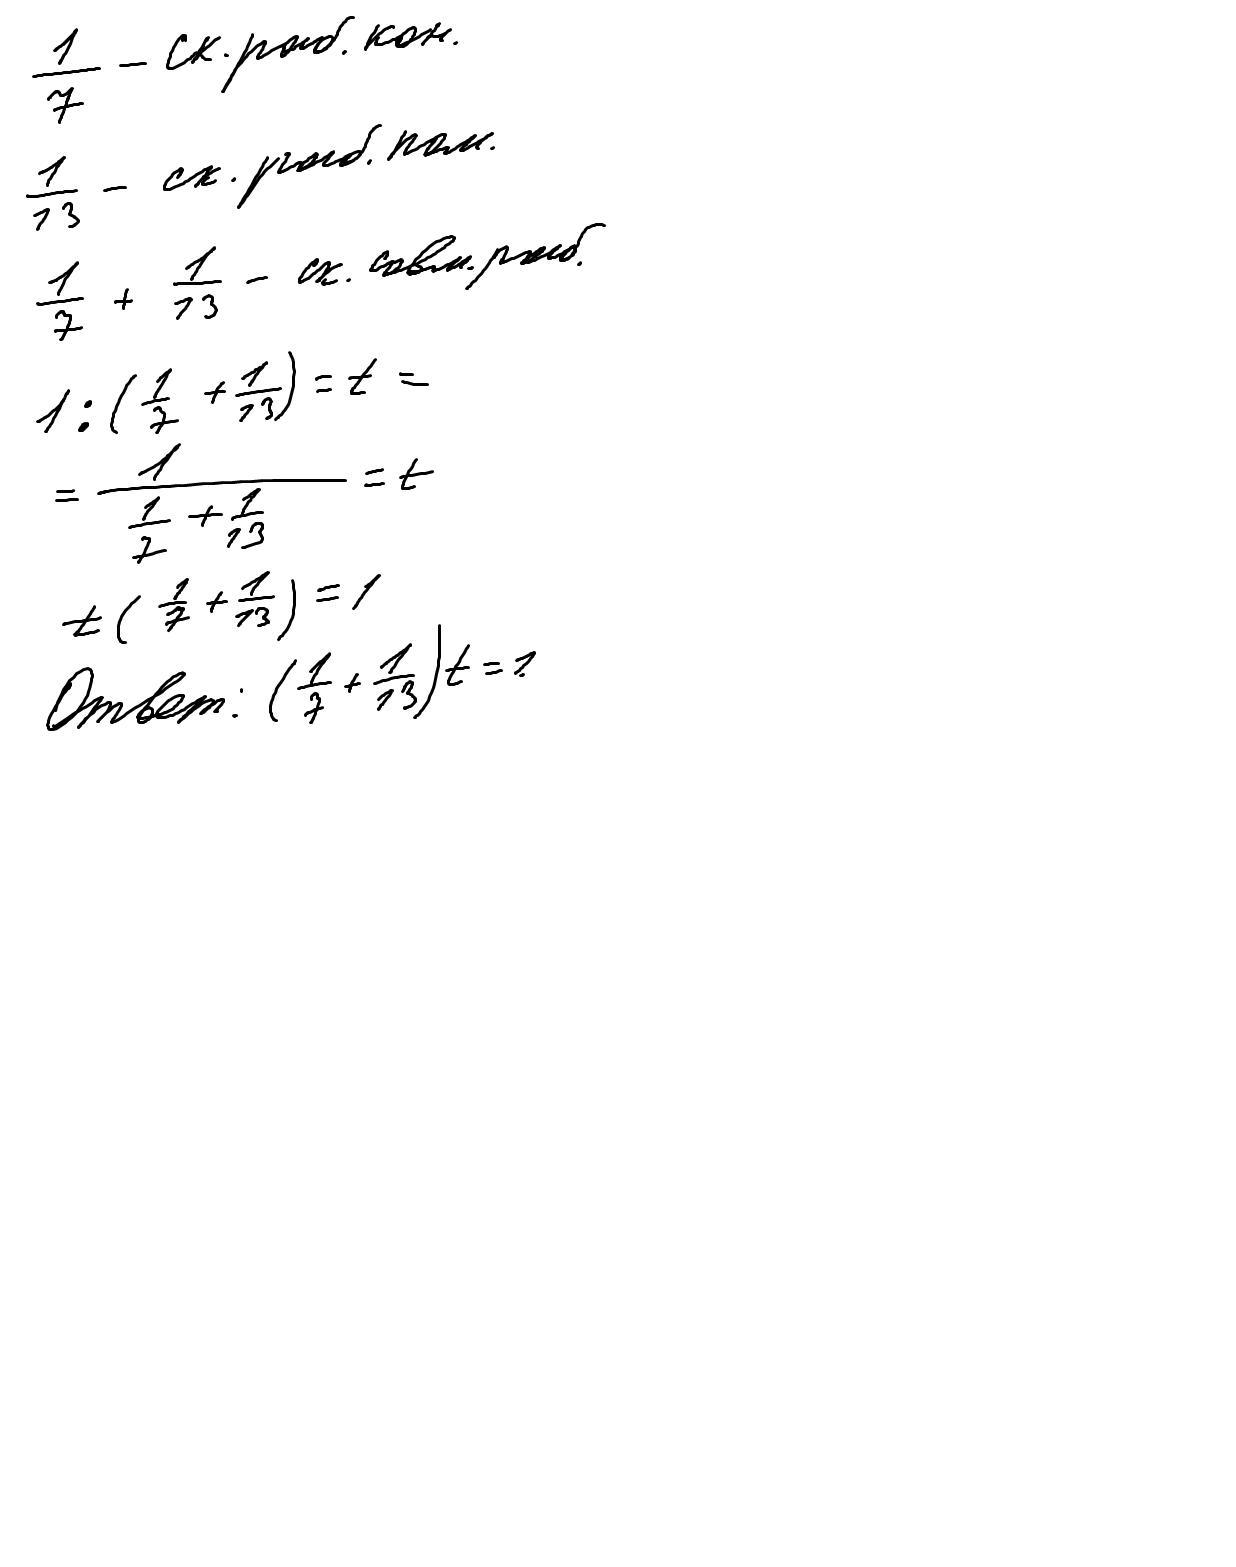 1/7 - Ск. раб. кон.
1/13 - ск. раб. пом.
1/7 + 1/13 - ск. совм. раб.
1 : (1/7 + 1/13) = t =
= 1/(1/7 + 1/13) = t
t(1/7 + 1/13) = 1
Ответ: (1/7 + 1/13)t = 1.